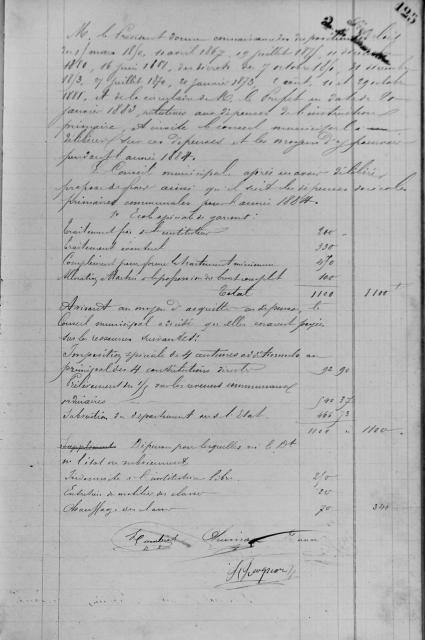 125
M. le Président donne connaissance des dispositions des lois
des 15 mars 1850, 10 avril 1867, 19 juillet 1875,
1880, 16 juin 1881, des décrets du 7 octobre 1850, 31
27 juillet 1870, 20 janvier 1873, 2 août, et 29 octobre
1881, et de la circulaire de M. le Préfet en date du 20
janvier 1883, relatives aux dépenses de l'instruction
primaire, et invite le conseil municipal à
délibérer sur ces dépenses et les moyens d'y pourvoir
pendant l'année 1884.
Le Conseil municipal après en avoir délibéré
propose de fixer ainsi qu'il suit les dépenses des écoles
primaires communales pour l'année 1884.
1° Ecole spéciale de garçons :
Traitement fixe de l'instituteur 200 "
Traitement éventuel 330
Complément pour former le traitement minimum 470
Allocation 100
Total 1100 1100
Avisant au moyen d'acquitter ces dépenses, le
Conseil municipal a décidé qu'elles seraient payées
sur les ressources suivantes :
Imposition spéciale de 4 centimes additionnels au
principal des 4 contributions directes 92 90
Prélèvement du 1/5 sur les revenus communaux
ordinaires 540 37
Subvention du département ou de l'Etat 466 73
1100 " 1100
Dépenses pour lesquelles ni le Dt
ni l'état ne subviennent
Indemnité à l'instituteur 250
Entretien du mobilier des classes 20
Chauffage des classes 70 340